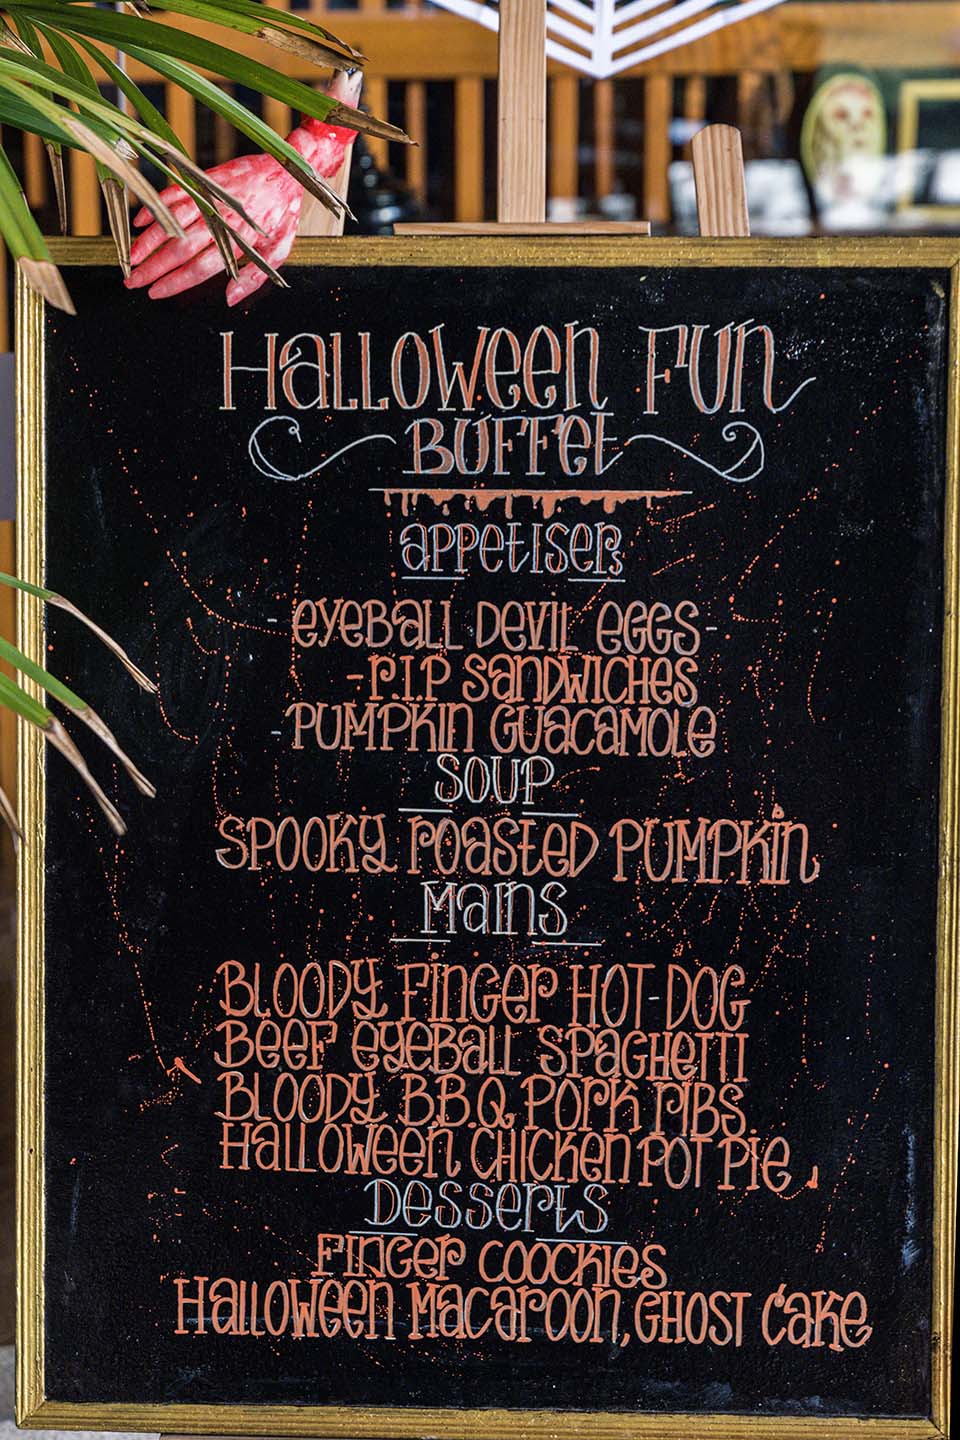 Halloween Fun
Buffet
appetisers
- eyeball Devil eggs -
- R.I.P Sandwiches
- Pumpkin Guacamole
Soup
Spooky roasted Pumpkin
Mains
Bloody Finger Hot-Dog
Beef eyeball Spaghetti
Bloody B.B.Q Pork ribs.
Halloween Chicken Pot Pie
Desserts
Finger coockies
Halloween Macaroon, Ghost Cake